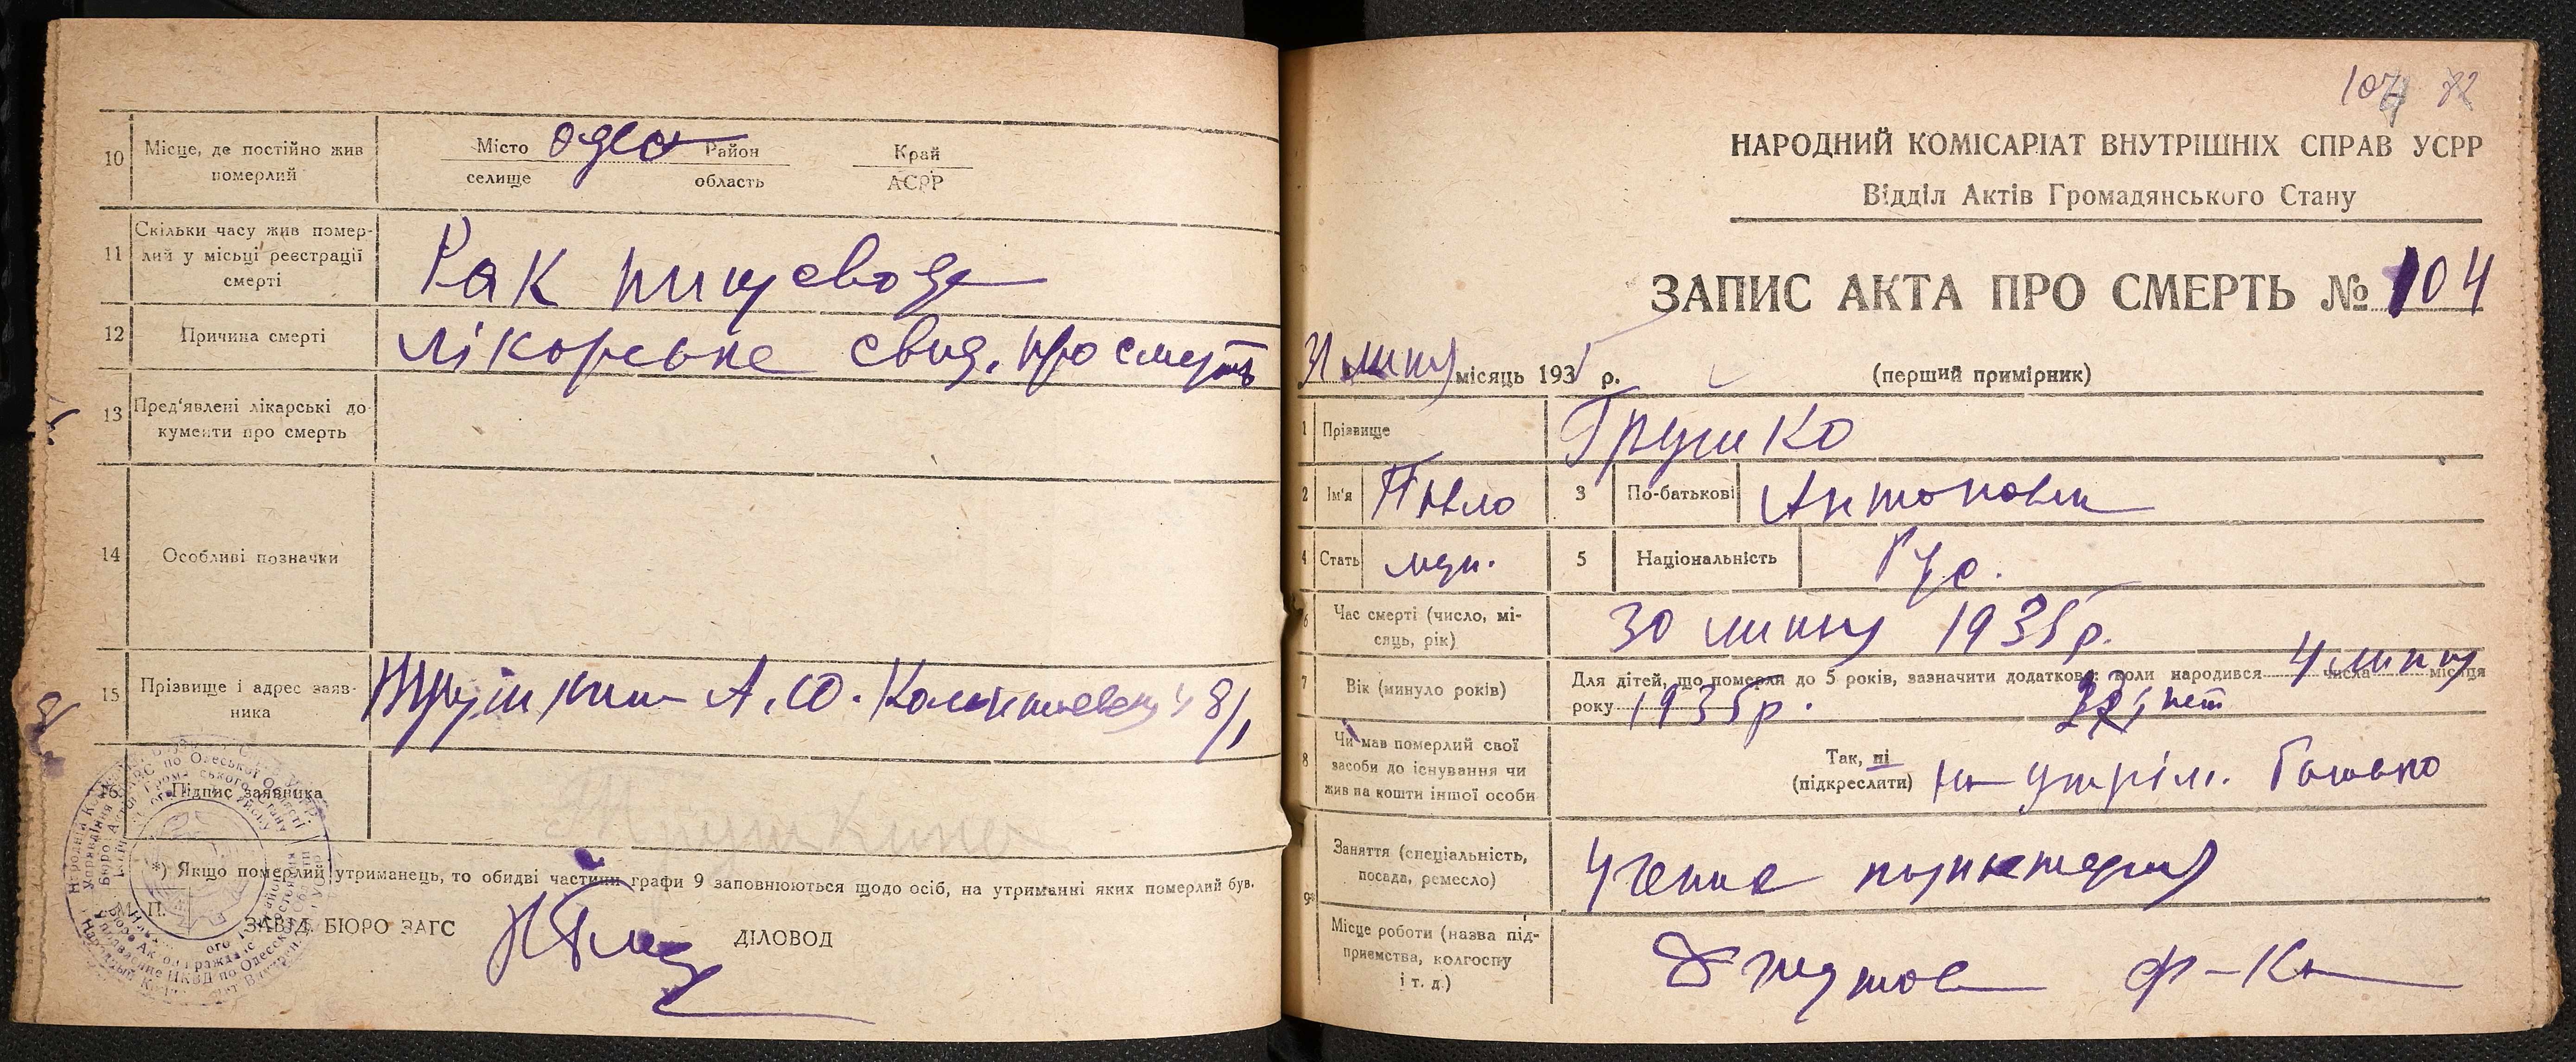 10
Місце, де постійно жив
померлий
Місто Одеса Район Край
селище область АСРР
11
Скільки часу жив помер-
лий у місьці реєстрації
смерті
Рак пищевода
12
Причина смерті
Лікарське свид. про смерть
13
Пред'явлені лікарські до-
кументи про смерть
14
Особливі позначки
15
Прізвище і адрес заяв-
ника
А. Ю. 8/1
16
Підпис заявника
*) Якщо померлий утриманець, то обидві частини графи 9 заповнюються щодо осіб, на утриманні яких померлий був.
М. П.
ЗАВІД. БЮРО ЗАГС
ДІЛОВОД
104
НАРОДНИЙ КОМІСАРІАТ ВНУТРІШНІХ СПРАВ УСРР
Відділ Актів Громадянського Стану
ЗАПИС АКТА ПРО СМЕРТЬ № 104
31 липня місяць 1935 р. (перший примірник)
1 Прізвище Грушко
2 Ім'я Павло 3 По-батькові Антонович
4 Стать муж. 5 Національність Рус.
6
Час смерті (число, мі-
сяць, рік)
30 липня 1935 р.
7 Вік (минуло років)
Для дітей, що померли до 5 років, зазначити додатково: коли народився 4 числа липня місяця
року 1935 р. лет
8
Чи мав померлий свої
засоби до існування чи
жив на кошти іншої особи
Так, ні
(підкреслити)
на утрім. батько
9
Заняття (спеціальність,
посада, ремесло)
Місце роботи (назва під-
приємства, колгоспу
і т. д.)
Джутова ф-ка